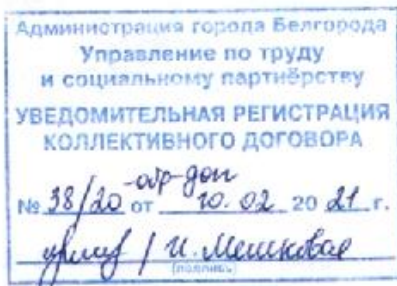 Администрация города Белгорода
Управление по труду
и социальному партнёрству
УВЕДОМИТЕЛЬНАЯ РЕГИСТРАЦИЯ
КОЛЛЕКТИВНОГО ДОГОВОРА
№ 38/20 -отр-доп от 10.02 2021 г.
/ И. Мешкова
(подпись)